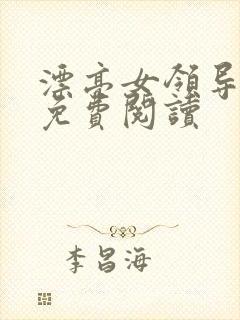 漂亮女領导
免費閱讀
李昌海